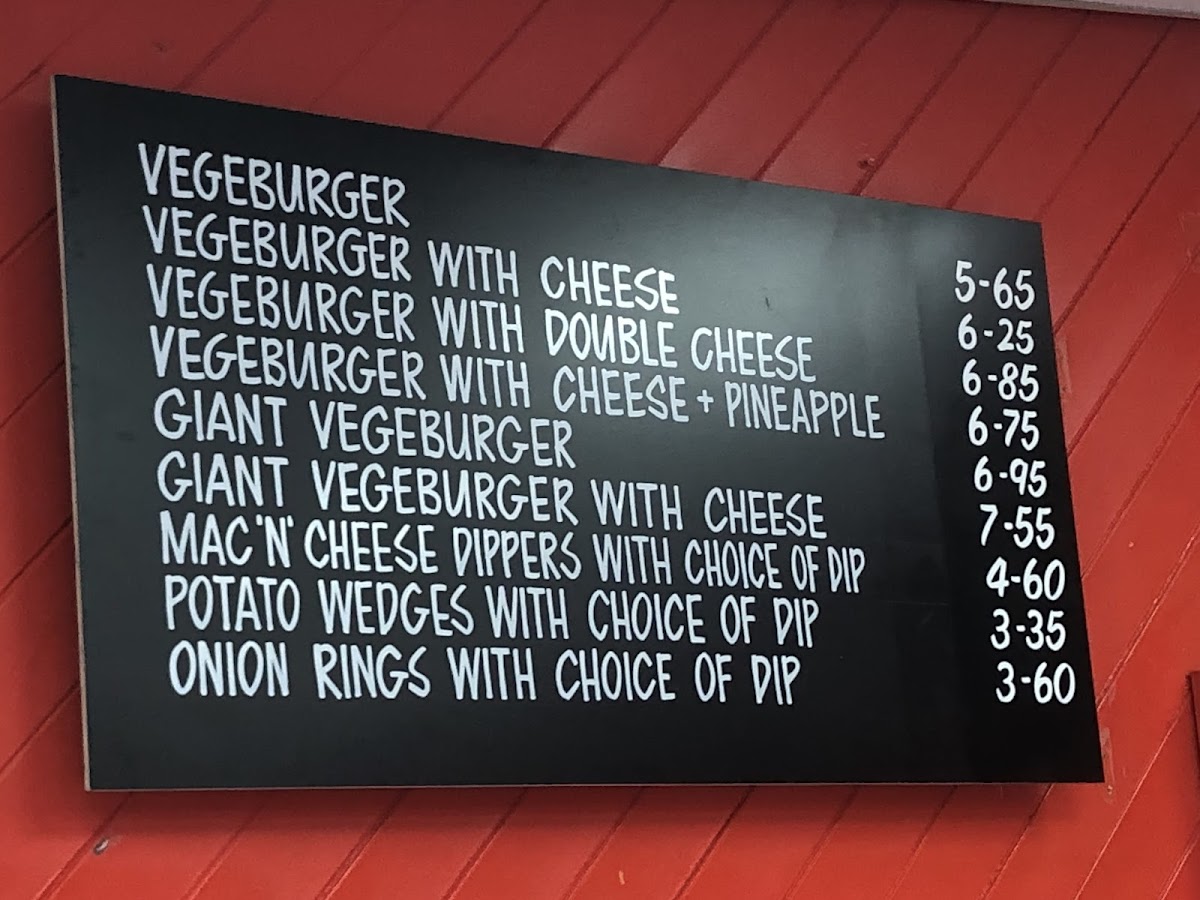 VEGEBURGER 5-65
VEGEBURGER WITH CHEESE 6-25
VEGEBURGER WITH DOUBLE CHEESE 6-85
VEGEBURGER WITH CHEESE + PINEAPPLE 6-75
GIANT VEGEBURGER 6-95
GIANT VEGEBURGER WITH CHEESE 7-55
MAC 'N' CHEESE DIPPERS WITH CHOICE OF DIP 4-60
POTATO WEDGES WITH CHOICE OF DIP 3-35
ONION RINGS WITH CHOICE OF DIP 3-60